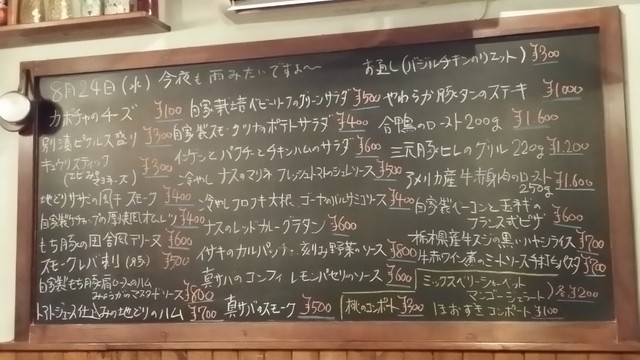 8月24日(水) 今夜も雨みたいですよ〜
お通し(バジルチキンのリエット) ¥300
カボチャのチーズ ¥100
別漬ピクルス盛り ¥300
キュウリスティック ¥300
地どりササミの風干スモーク ¥400
自家製ケチャップの厚焼風オムレツ ¥400
もち豚の田舎風テリーヌ ¥600
スモークレバ刺し ¥500
自家製もち豚肩ロースのハム
マスタードソース ¥800
トマトジュース仕込みの地どりのハム ¥700
自家栽培ベビーリーフのグリーンサラダ ¥500
自家製スモークツナのポテトサラダ ¥400
インゲンとパクチーとチキンハムのサラダ ¥600
冷やしナスのマリネ フレッシュトマトのジュレソース ¥500
冷やしフロフキ大根、ゴーヤのバルサミコソース ¥400
ナスのレッドカレーグラタン ¥600
イサキのカルパッチョ 刻み野菜のソース ¥800
真サバのコンフィ レモンパセリのソース ¥600
真サバのスモーク ¥500
やわらか豚タンのステキ ¥1000
合鴨のロースト200g ¥1.600
三元豚ヒレのグリル 220g ¥1.200
アメリカ産牛赤身肉のロースト
250g ¥1.600
自家製ベーコンと玉ネギの
フランス式ピザ ¥600
栃木県産牛スジの黒いハヤシライス ¥700
牛赤ワイン煮のミートソース ¥700
桃のコンポート ¥300
ミックスベリーシャーベット
マンゴーシェラート 各¥200
ほおずきコンポート ¥100